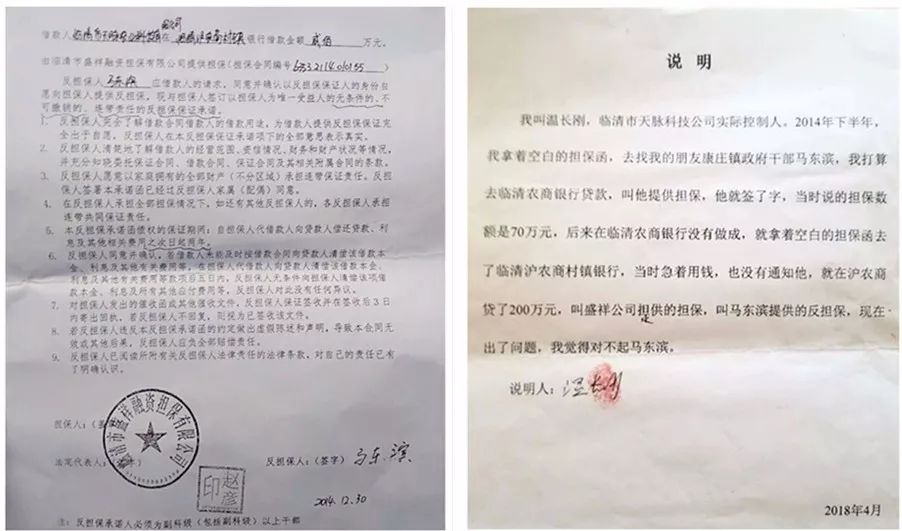 借款人 临清市天脉农业科技有限公司 在 临清沪农商村镇 银行借款金额 贰佰 万元,
由临清市盛祥融资担保有限公司提供担保(担保合同编号
反担保人 马东滨 应借款人的请求,同意并确认以反担保保证人的身份自
愿向担保人提供反担保,现与担保人签订以担保人为唯一受益人的无条件的、不
可撤销的、连带责任的反担保保证承诺。
1. 反担保人完全了解借款合同借款人的借款用途,为借款人提供反担保保证完
全出于自愿,反担保人在本反担保保证承诺项下的全部意思表示真实。
2. 反担保人清楚地了解借款人的经营范围、资信情况、财务和财产状况等情况,
并充分知晓委托保证合同、借款合同、保证合同及其相关附属合同的条款。
3. 反担保人愿意以家庭拥有的全部财产(不分区域)承担连带保证责任。反担
保人签署本承诺函已经过反担保人家属(配偶)同意。
4. 在反担保人承担全部担保情况下,如还有其他反担保人的,各反担保人承担
连带共同保证责任。
5. 本反担保承诺函债权的保证期间:自担保人代借款人向贷款人偿还贷款、利
息及其他相关费用之次日起两年。
6. 反担保人同意并确认,若借款人未能及时按借款合同向贷款人清偿该借款本
金、利息及其他有关费用等,在担保人代借款人向贷款人清偿该借款本金、
利息及其他有关费用等款项后五日内,反担保人无条件向担保人清偿该项借
款本金、利息及所有其他应付费用等,反担保人对此没有任何异议。
7. 对担保人发出的催收函或其他催收文件,反担保人保证签收并在签收后3日
内寄出回执,若反担保人不回复,则视为已签收该文件。
8. 若反担保人违反本反担保承诺函的约定做出虚假陈述和声明,导致本合同无
效或其他后果,反担保人应负全部赔偿责任。
9. 反担保人已阅读所附有关反担保人法律责任的法律条款,对自己的责任已有
了明确认识。
担保人:(盖
临清市盛祥融资担保有限公司
法定代表人: 字)
赵彦印
反担保人:(签字) 马东滨
2014.12.30
注:反担保承诺人必须为副科级(包括副科级)以上干部
说 明
我叫温长刚,临清市天脉科技公司实际控制人。2014年下半年,
我拿着空白的担保函,去找我的朋友康庄镇政府干部马东滨,我打算
去临清农商银行贷款,叫他提供担保,他就签了字,当时说的担保数
额是70万元,后来在临清农商银行没有做成,就拿着空白的担保函去
了临清沪农商村镇银行,当时急着用钱,也没有通知他,就在沪农商
贷了200万元,叫盛祥公司担供的担保,叫马东滨提供的反担保,现在
提
出了问题,我觉得对不起马东滨。
说明人:温长刚
2018年4月